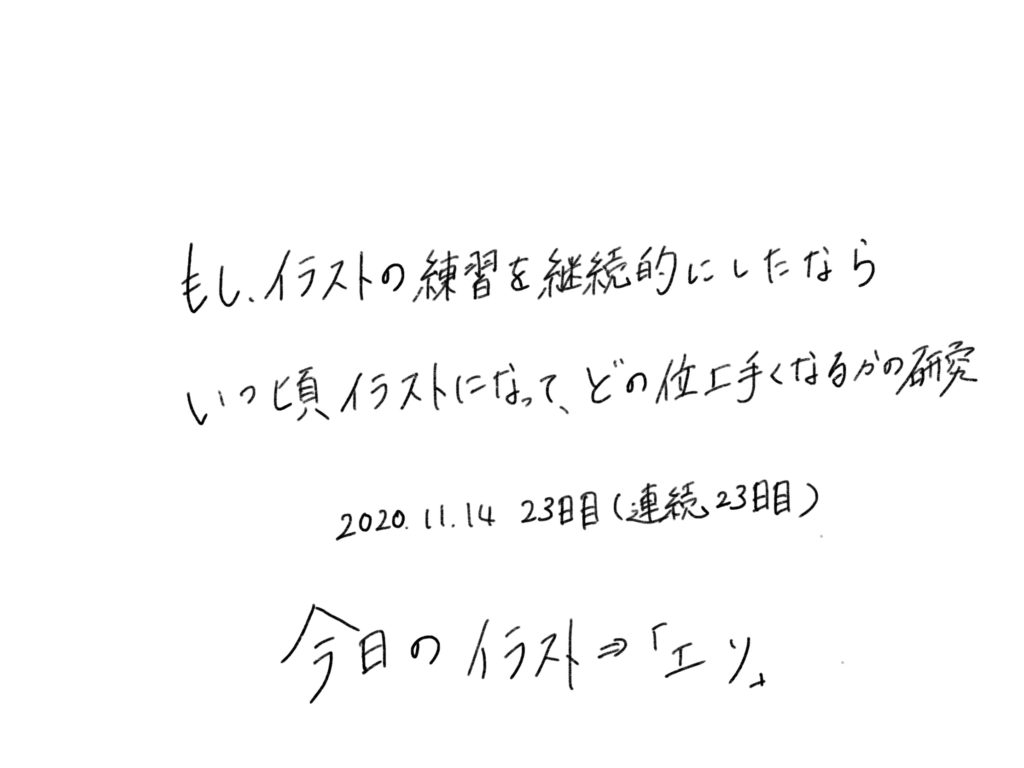 もし、イラストの練習を継続的にしたなら
いつ頃イラストになって、どの位上手くなるかの研究
2020.11.14 23日目(連続23日目)
今日のイラスト⇒「エソ」